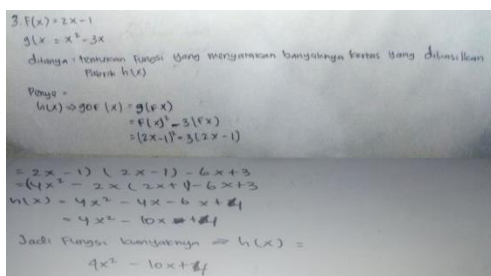 3. F(x) = 2x - 1
g(x = x² - 3x
ditanya = tentukan Fungsi yang menyatakan banyaknya kertas yang dihasilkan
Pabrik h(x)
Penye =
h(x) ⇒ gof (x) = g(Fx)
= F(x)² - 3(Fx)
= (2x-1)² - 3(2x-1)
= 2x - 1) (2x - 1) - 6x + 3
= (4x² - 2x (2x+1) - 6x + 3
h(x) = 4x² - 4x - 6x + 4
= 4x² - 10x + 4
Jadi Fungsi banyaknya ⇒ h(x) =
4x² - 10x + 4